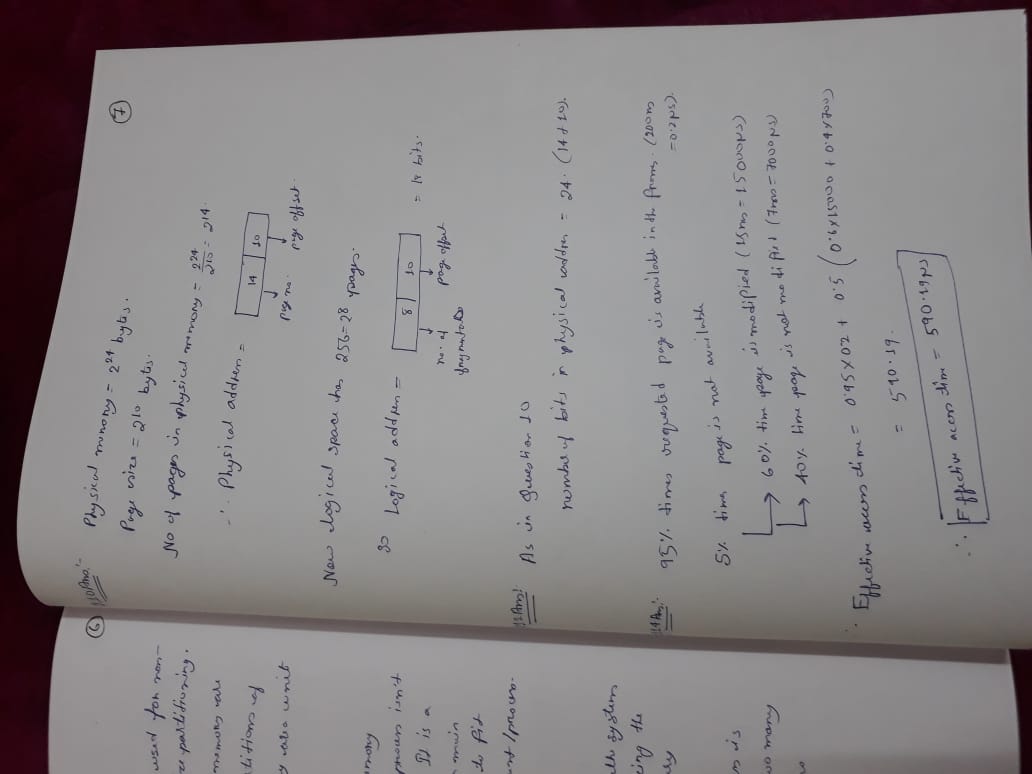 6
used for non-
re partitioning.
memory are
titions of
y also unit
emory
process isn't
It is a
main
to fit
ent/process-
the system
cing the
ary
m is
oo many
7
10 Ans:-
Physical memory = 2^24 bytes.
Page size = 2^10 bytes.
No of pages in physical memory = 2^24/2^10 = 2^14.
∴ Physical address = 14 | 10
page no. page offset.
Now logical space has 256=2^8 pages.
So Logical address = 8 | 10 = 18 bits.
no. of page offset
As in Question 10
number of bits in physical address = 24. (14+10).
14 Ans:-
95% times requested page is available in the frames. (200ns
=0.2μs).
5% times page is not available
60% time page is modified (15ms = 15000μs)
40% time page is not modified (7ms = 7000μs)
∴ Effective access time = 0.95×0.2 + 0.5 (0.6×15000 + 0.4×7000)
= 590.19.
∴ Effective access time = 590.19μs